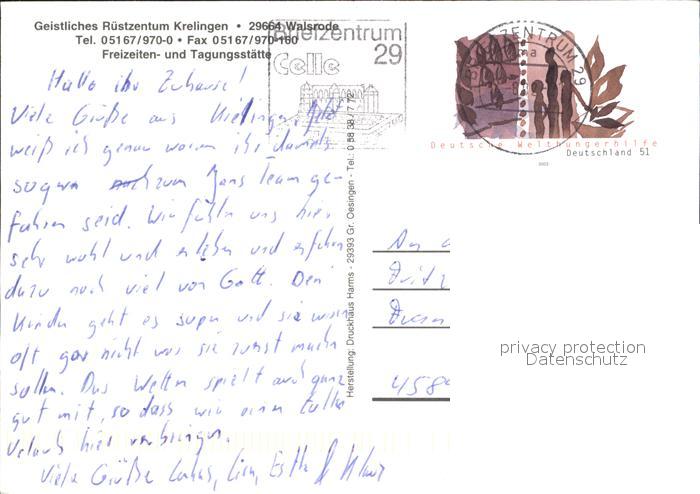 Geistliches Rüstzentum Krelingen • 29664 Walsrode
Tel. 05167/970-0 • Fax 05167/970-160
Freizeiten- und Tagungsstätte
Briefzentrum
29
Celle
BRIEFZENTRUM 29
Deutsche Welthungerhilfe
Deutschland 51
2003
Hallo ihr Zuhause!
Viele Grüße aus Krelingen. Jetzt
weiß ich genau warum ihr damals
sogar zum Jans Team ge-
fahren seid. Wir fühlen uns hier
sehr wohl und erleben und erfahren
dazu noch viel von Gott. Den
Kindern geht es super und sie wissen
oft gar nicht was sie zuerst machen
sollen. Das Wetter spielt auch ganz
gut mit, so dass wir einen tollen
Urlaub hier verbringen.
Viele Grüße Lukas, Lisa, Esther &
Herstellung: Druckhaus Harms - 29393 Gr. Oesingen - Tel.: 0 58 38 / 7 72
An
Fritz
458
privacy protection
Datenschutz